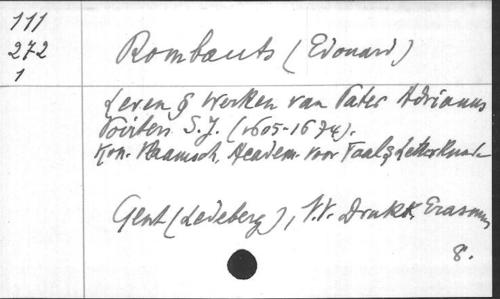 111
272
1
Rombauts (Edouard)
Leven & Werken van Pater Adrianus
Poirters S.J. (1605-1674).
Kon. Vlaamsch. Academ. voor Taal & Letterkunde
Gent (Ledeberg), N.V. Drukk. Erasmus
8.